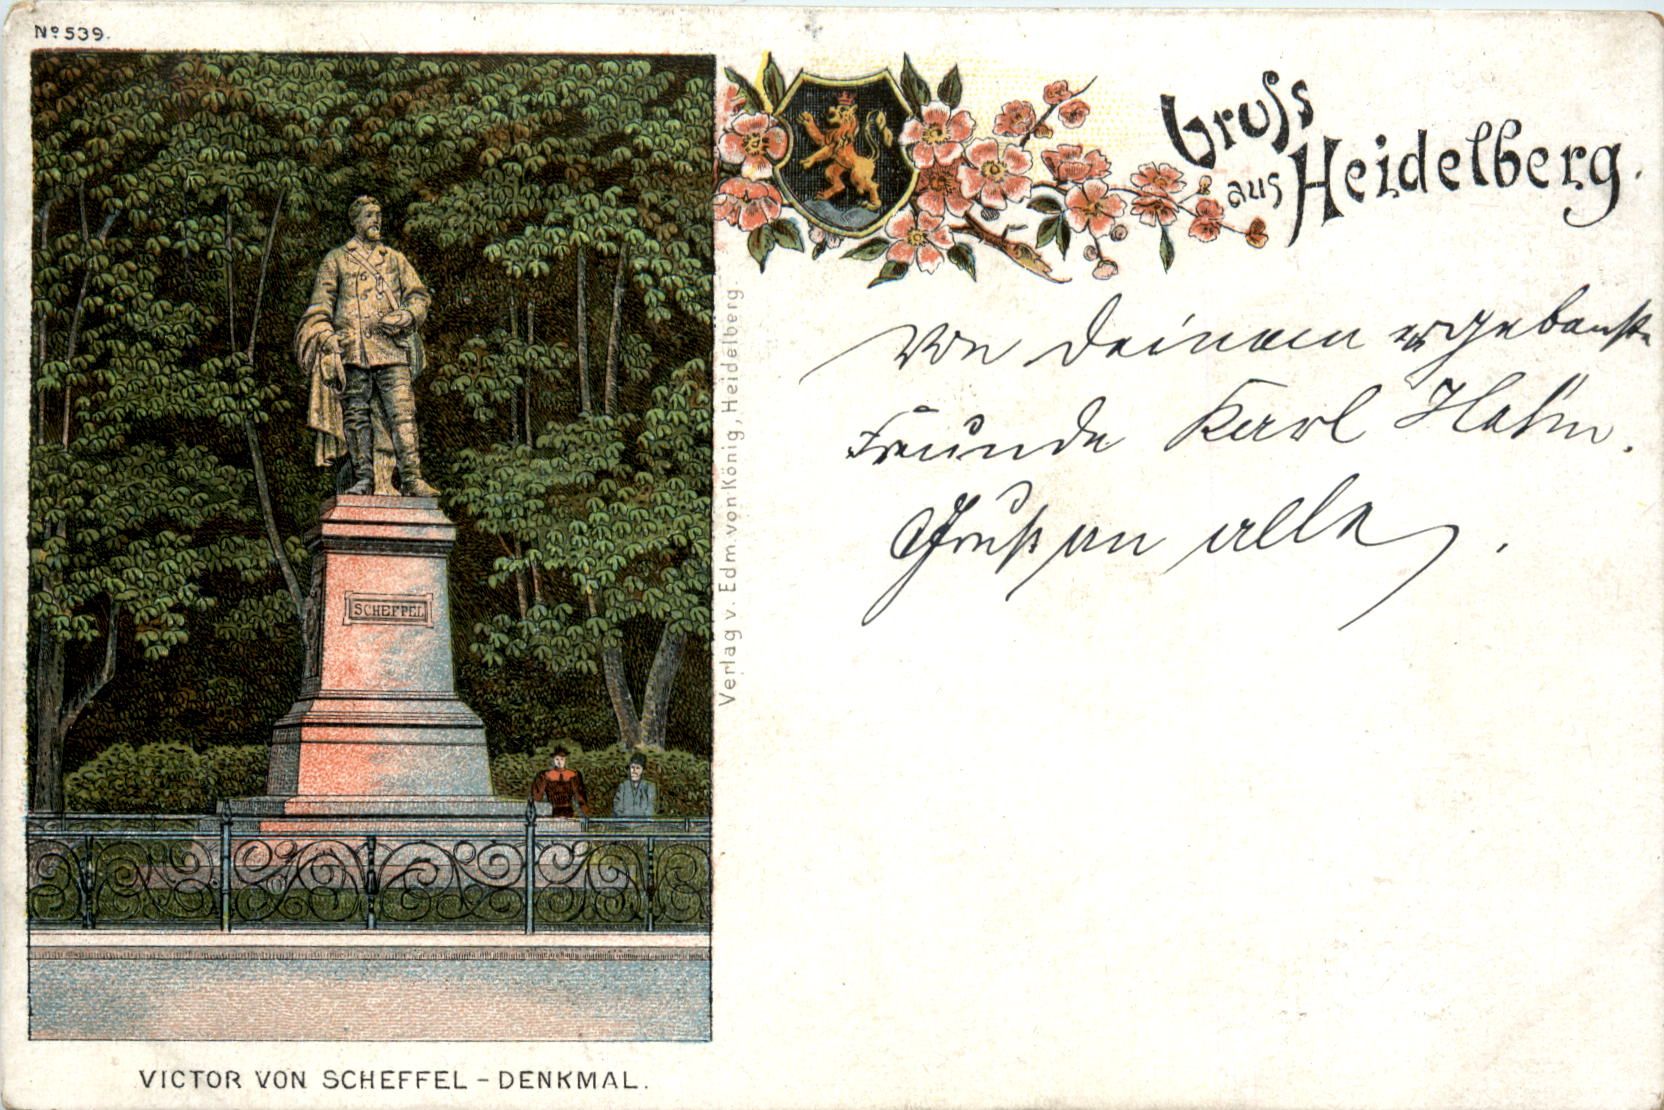 Nº 539.
Gruss
aus Heidelberg.
Von deinem ergebenste
Freunde Karl Hahn.
Gruß an alle.
SCHEFFEL
Verlag v. Edm. von König, Heidelberg
VICTOR VON SCHEFFEL - DENKMAL.